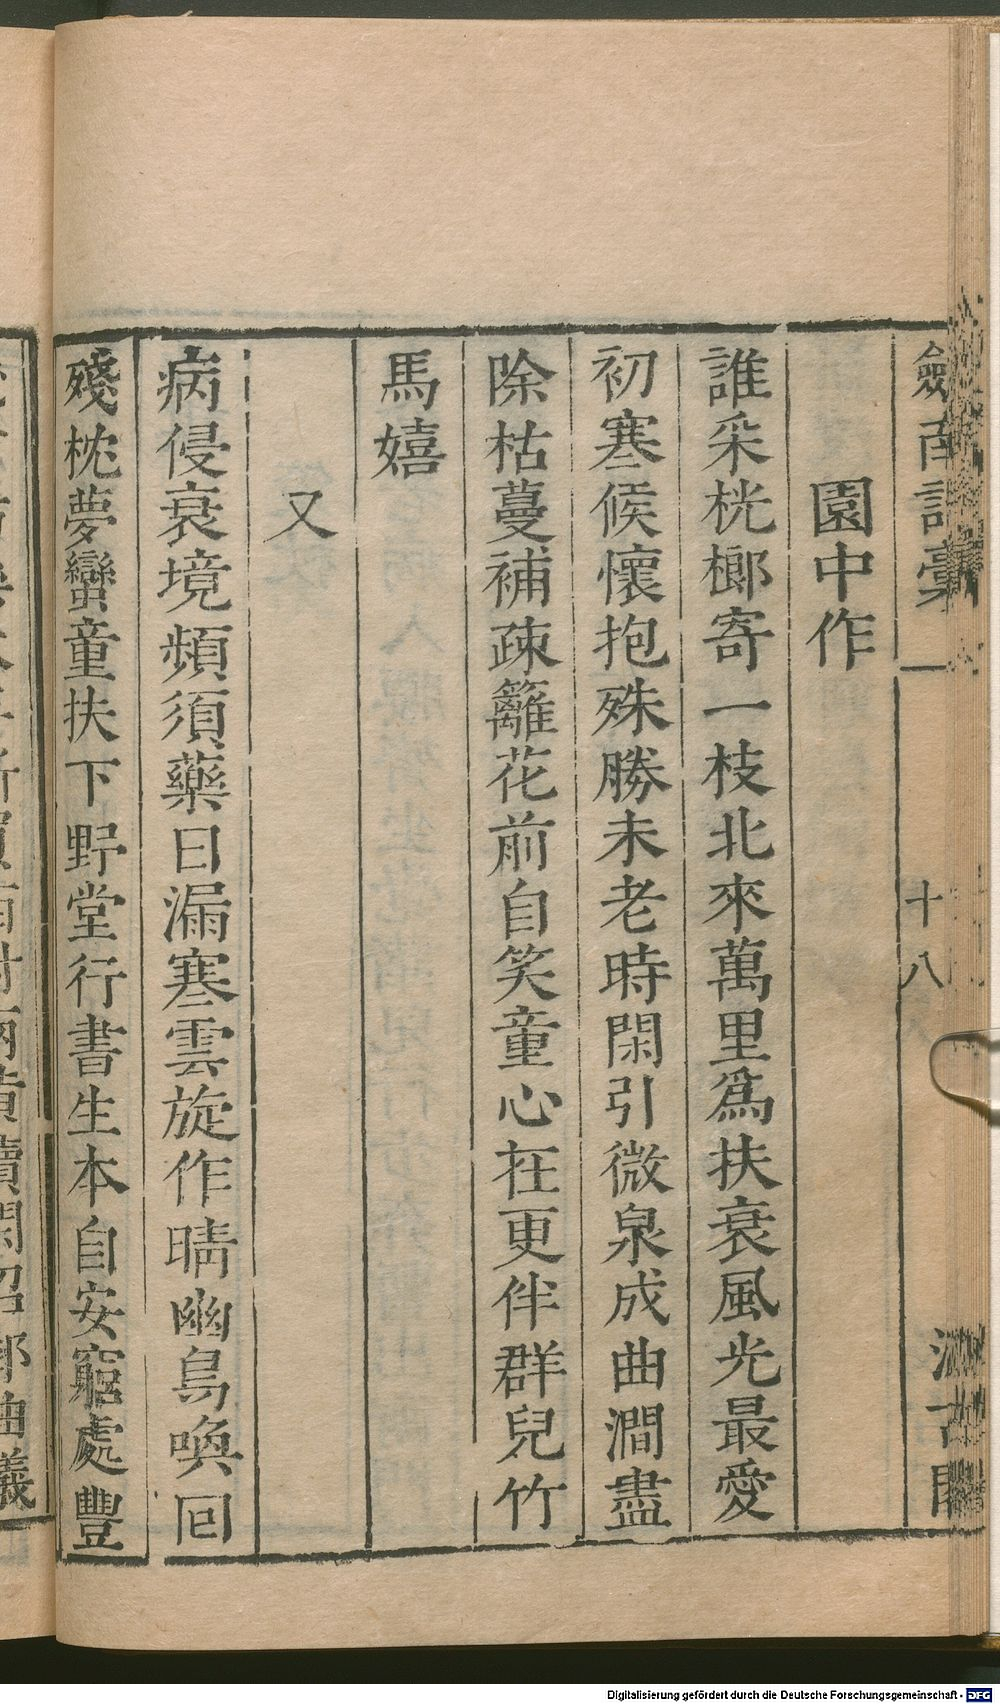 劍南詩稾 一 十八 汲古閣
園中作
誰采桄榔寄一枝北來萬里爲扶衰風光最愛
初寒候懷抱殊勝未老時閑引微泉成曲澗盡
除枯蔓補疎籬花前自笑童心在更伴群兒竹
馬嬉
又
病侵衰境頻須藥日漏寒雲旋作晴幽鳥喚回
殘枕夢蠻童扶下野堂行書生本自安窮處豐
Digitalisierung gefördert durch die Deutsche Forschungsgemeinschaft - DFG